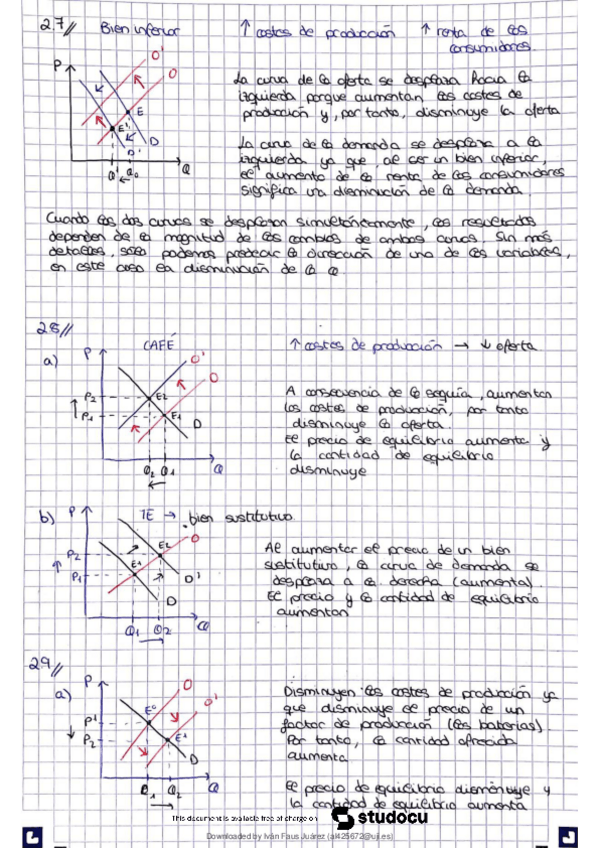 2.7// Bien inferior ↑ costes de producción ↑ renta de los consumidores.
P O' O
E
E'
D
D'
Q' Q₀ Q
La curva de la oferta se desplaza hacia la
izquierda porque aumentan los costes de
producción y, por tanto, disminuye la oferta
La curva de la demanda se desplaza a la
izquierda ya que, al ser un bien inferior,
el aumento de la renta de los consumidores
significa una disminución de la demanda.
Cuando las dos curvas se desplazan simultáneamente, los resultados
dependen de la magnitud de los cambios de ambas curvas. Sin más
detalles, solo podemos predecir la dirección de una de las variables,
en este caso la disminución de la Q
2.8//
a) P CAFÉ O' O
P2 E2
P1 E1
D
Q2 Q1 Q
↑ costes de producción → ↓ oferta
A consecuencia de la sequía, aumentan
los costes de producción, por tanto
disminuye la oferta.
El precio de equilibrio aumenta y
la cantidad de equilibrio
disminuye
b) P TE → bien sustitutivo
O
P2 E2
P1 E1
D'
D
Q1 Q2 Q
Al aumentar el precio de un bien
sustitutivo, la curva de demanda se
desplaza a la derecha (aumenta).
El precio y la cantidad de equilibrio
aumentan
2.9//
a) P O O'
E⁰
P1
P2 E1
D
Q1 Q2 Q
Disminuyen los costes de producción ya
que disminuye el precio de un
factor de producción (las baterías).
Por tanto, la cantidad ofrecida
aumenta
El precio de equilibrio disminuye y
la cantidad de equilibrio aumenta
This document is available free of charge on studocu
Downloaded by Iván Faus Juárez (al425672@uji.es)